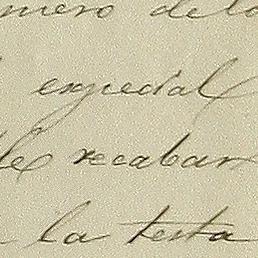 de la
especial
de recabar
la testa